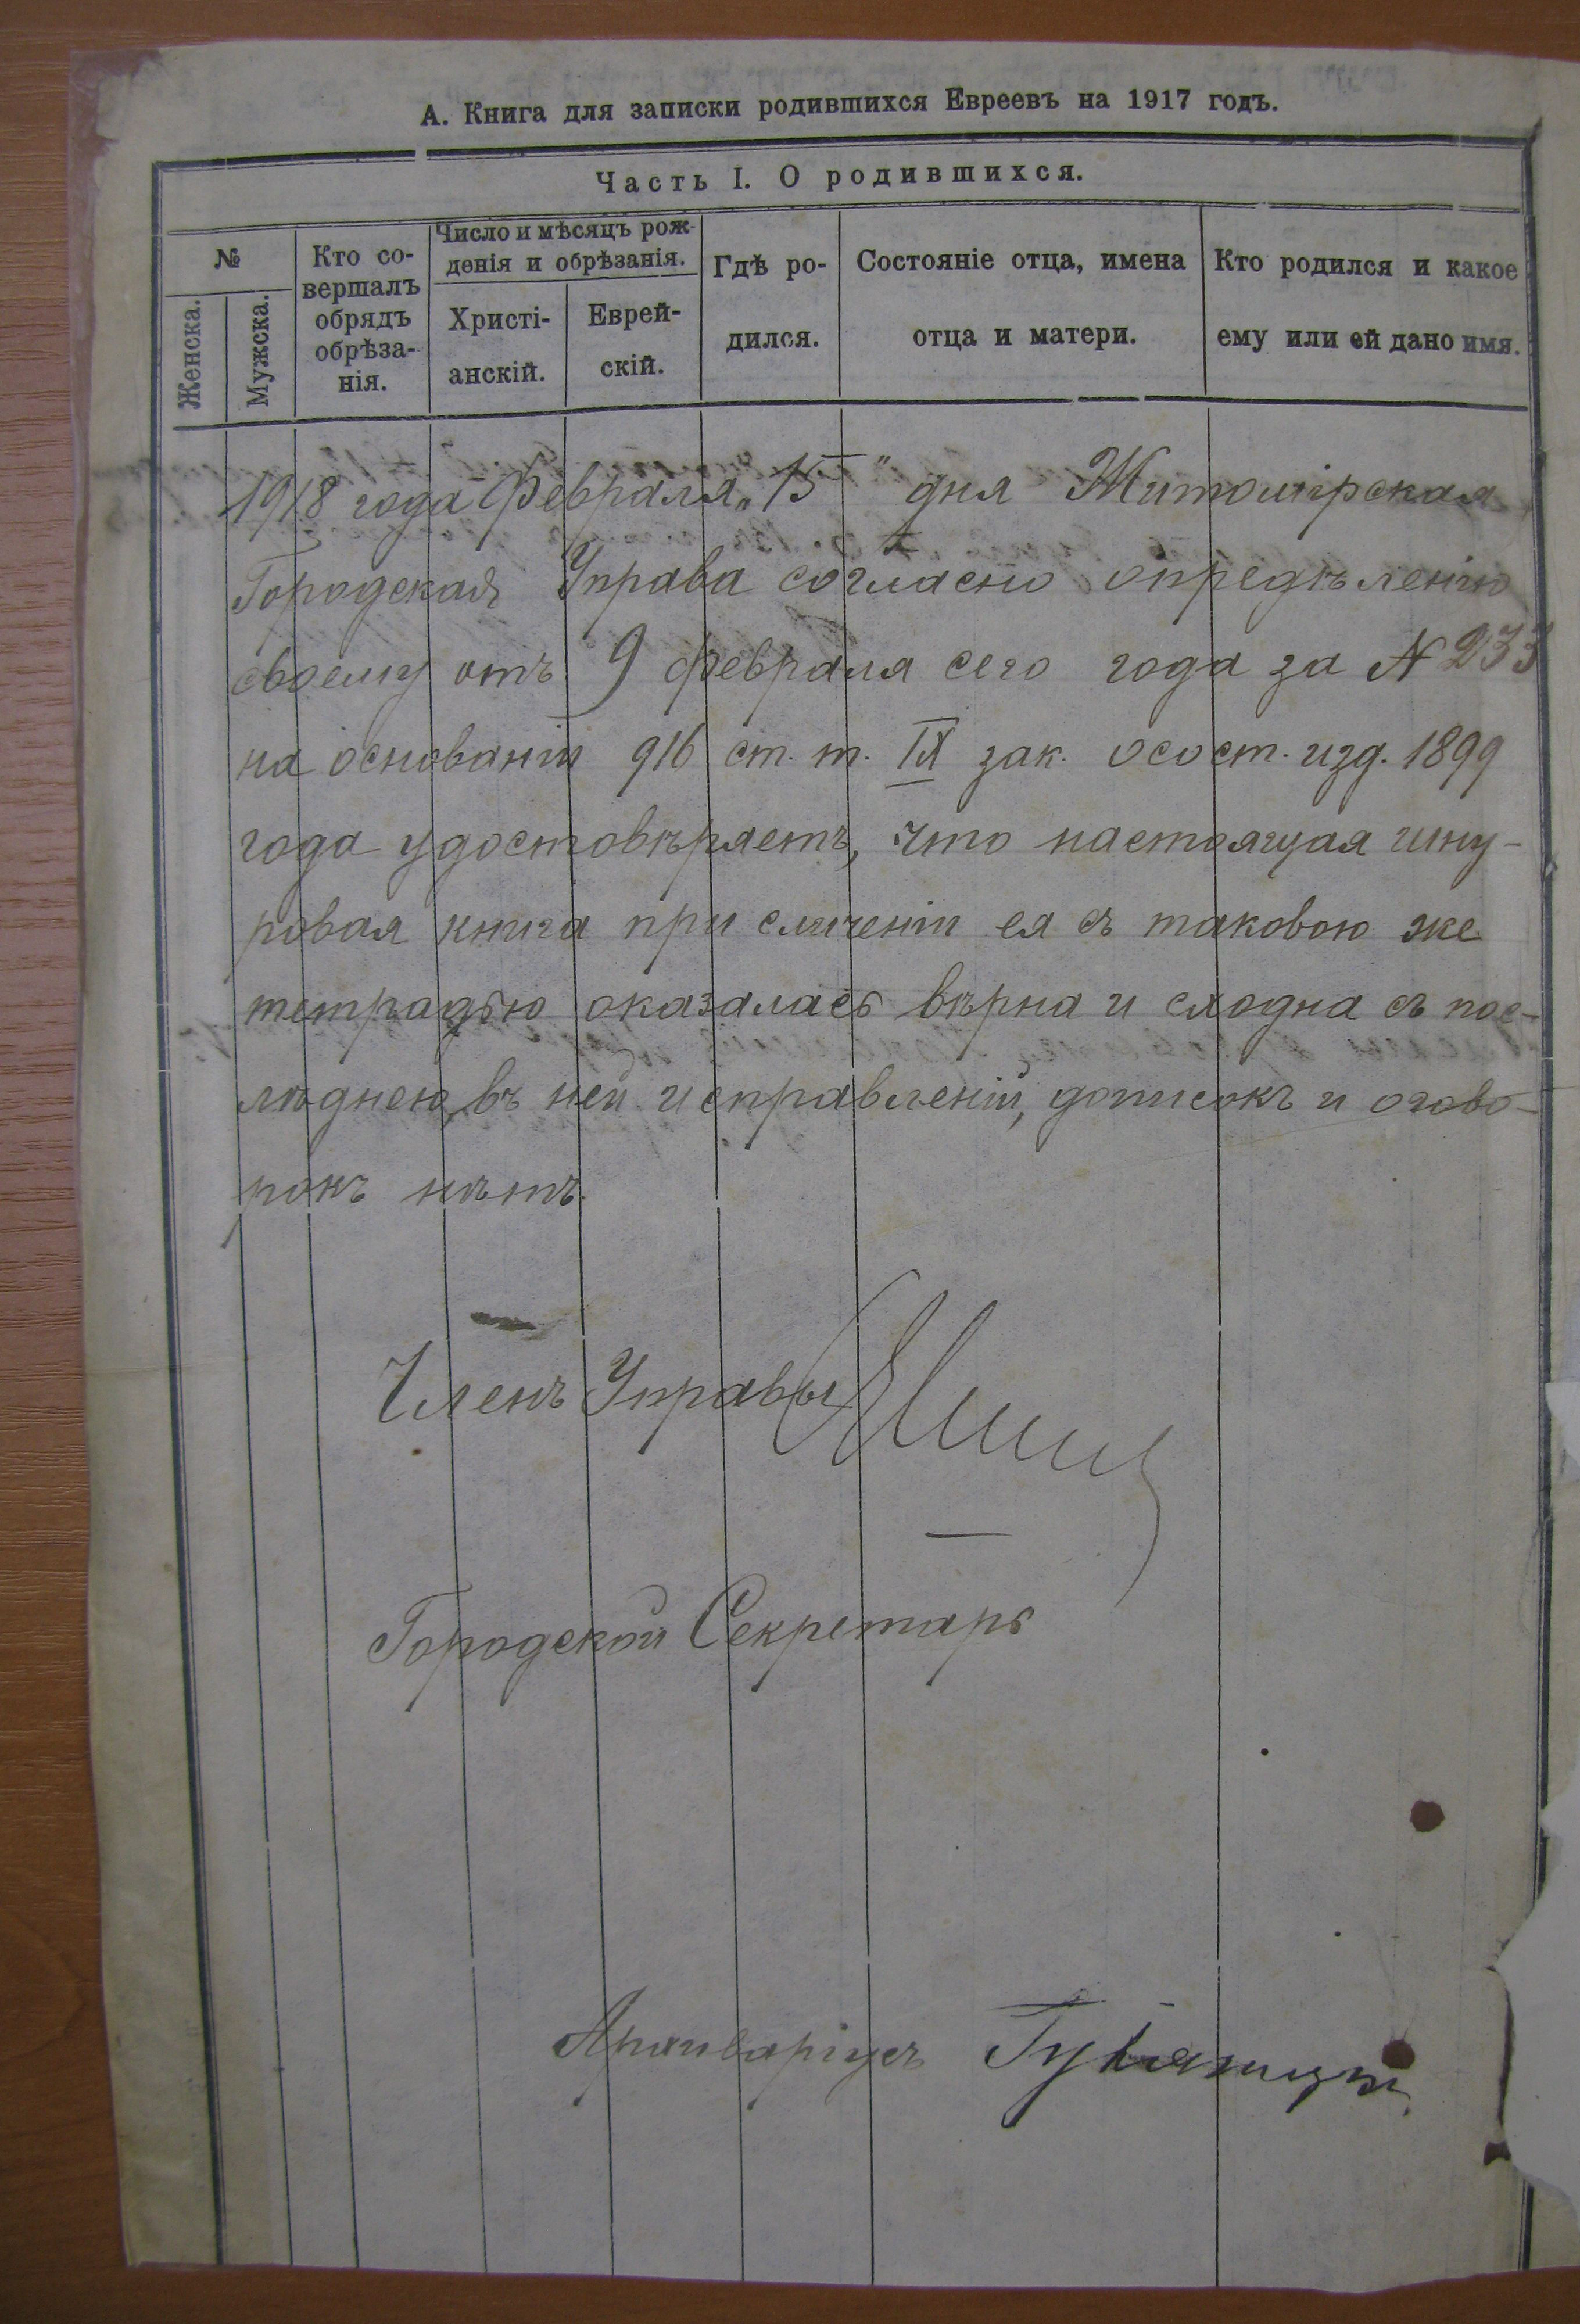 А. Книга для записки родившихся Евреевъ на 1917 годъ.
Часть I. О родившихся.
№
Женска.
Мужска.
Кто со-
вершалъ
обрядъ
обрѣза-
нія.
Число и мѣсяцъ рож-
денія и обрѣзанія.
Христі-
анскій.
Еврей-
скій.
Гдѣ ро-
дился.
Состояніе отца, имена
отца и матери.
Кто родился и какое
ему или ей дано имя.
1918 года Февраля „15" дня Житомірская
Городская Управа согласно опредѣленію
своему отъ 9 февраля сего года за № 233
на основаніи 916 ст. т. IX зак. о сост. изд. 1899
года удостовѣряетъ, что настоящая шну-
ровая книга при сличеніи ея съ таковою же
тетрадью оказалась вѣрна и сходна съ пос-
лѣднею, въ ней исправленій, дописокъ и огово-
рокъ нѣтъ.
Членъ Управы
Городской Секретарь
Архиваріусъ